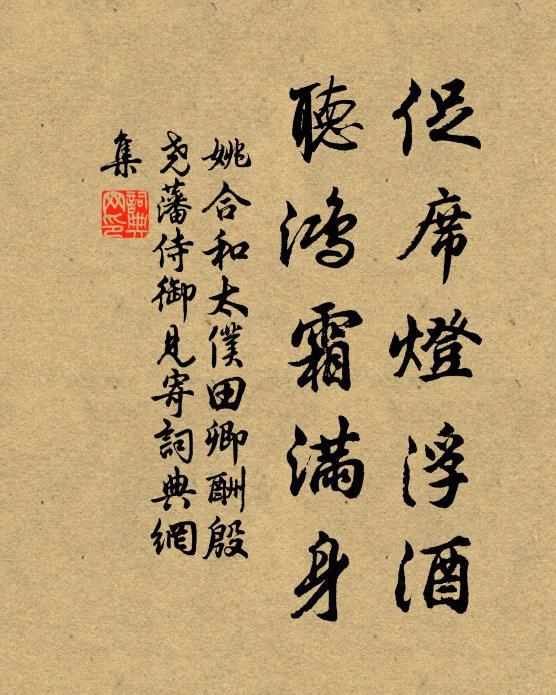 促席燈浮酒
聽鴻霜滿身
姚合和太僕田卿酬殷
尧藩侍御見寄詞典網
集
詞典
网印